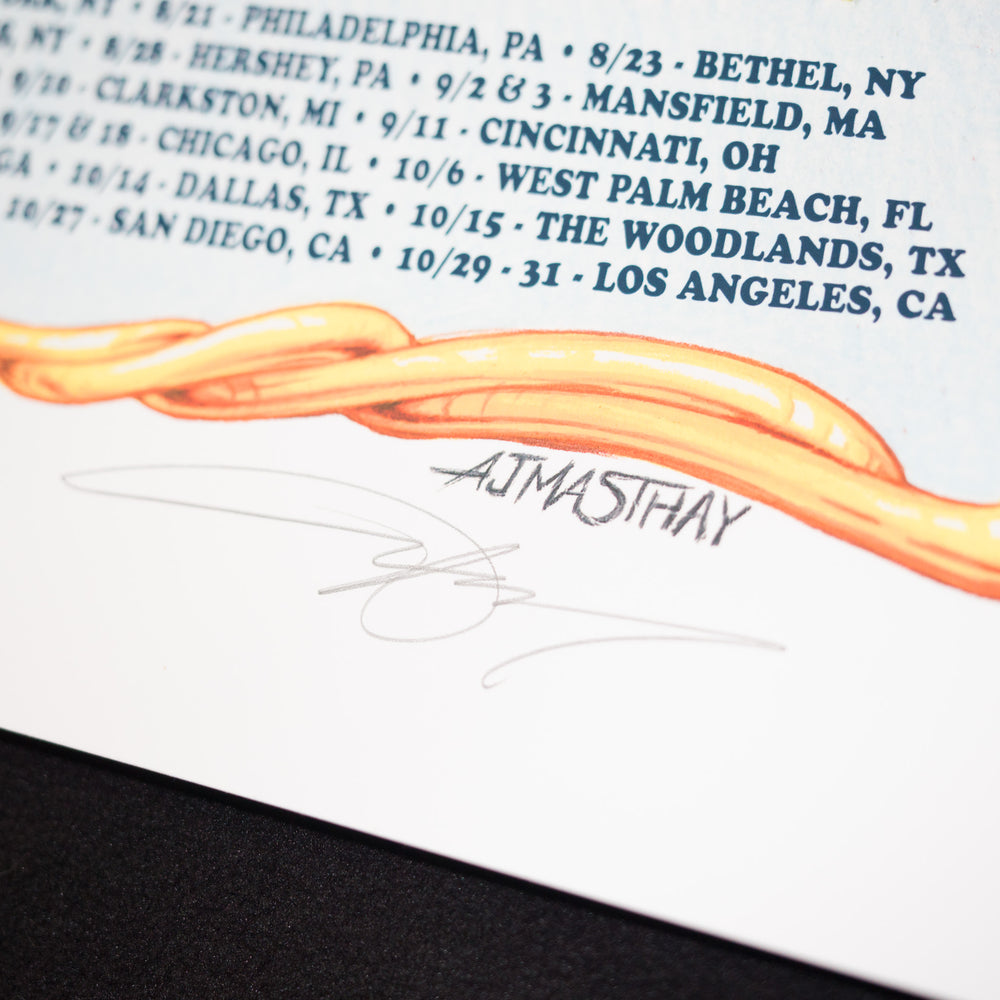 NY • 8/21 - PHILADELPHIA, PA • 8/23 - BETHEL, NY
NY • 8/28 - HERSHEY, PA • 9/2 & 3 - MANSFIELD, MA
9/10 - CLARKSTON, MI • 9/11 - CINCINNATI, OH
9/17 & 18 - CHICAGO, IL • 10/6 - WEST PALM BEACH, FL
GA • 10/14 - DALLAS, TX • 10/15 - THE WOODLANDS, TX
10/27 - SAN DIEGO, CA • 10/29 - 31 - LOS ANGELES, CA
AJMASTHAY